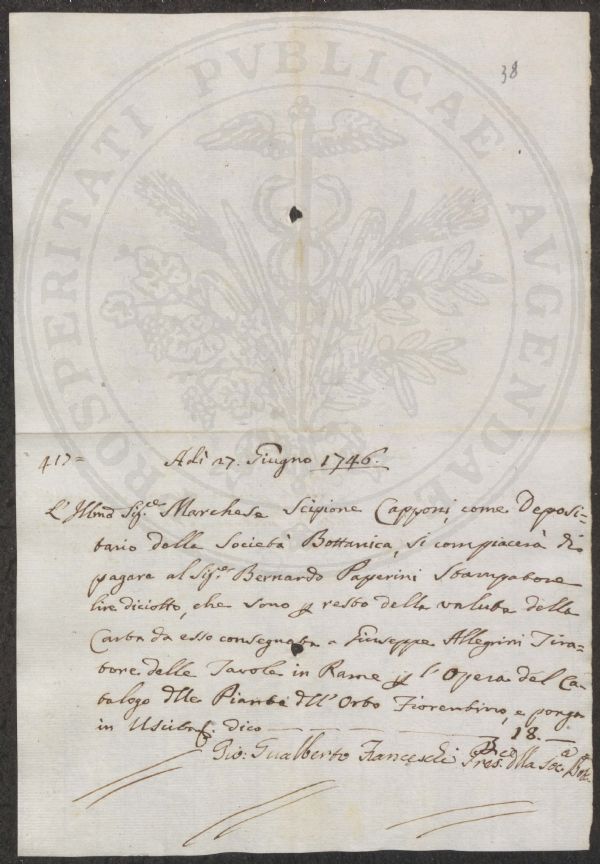 38
PROSPERITATI PVBLICAE AVGENDAE
417= Adì 27. Giugno 1746.
L'Illmo Sig.re Marchese Scipione Capponi, come Deposi=
tario della Società Bottanica, si compiacerà di
pagare al Sig.re Bernardo Paperini Stampatore
lire diciotto, che sono p resto della valuta della
Carta da esso consegnata a Giuseppe Allegrini Tira=
tore delle Tavole in Rame p l'Opera del Ca=
talogo dlle Piante dll'Orto Fiorentino, e ponga
in Uscita dico 18.
Gio: Gualberto Franceschi Pres. dlla Soc.a Bot.